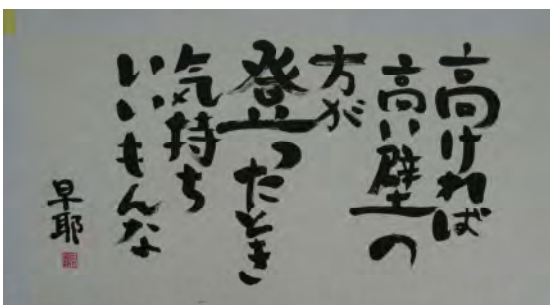 高ければ
高い壁の
方が
登ったとき
気持ち
いいもんな
早耶